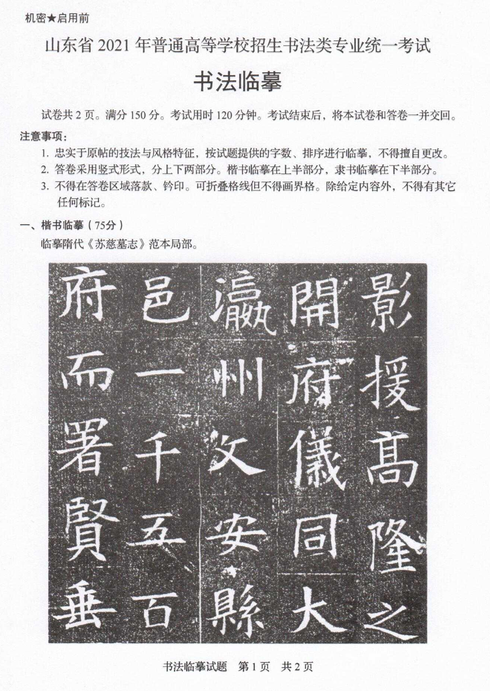 机密★启用前
山东省 2021 年普通高等学校招生书法类专业统一考试
书法临摹
试卷共 2 页。满分 150 分。考试用时 120 分钟。考试结束后，将本试卷和答卷一并交回。
注意事项：
1. 忠实于原帖的技法与风格特征，按试题提供的字数、排序进行临摹，不得擅自更改。
2. 答卷采用竖式形式，分上下两部分。楷书临摹在上半部分，隶书临摹在下半部分。
3. 不得在答卷区域落款、钤印。可折叠格线但不得画界格。除给定内容外，不得有其它
任何标记。
一、楷书临摹（75分）
临摹隋代《苏慈墓志》范本局部。
影援髙隆之
開府儀同大
瀛州文安縣
邑一千五百
府而署賢垂
书法临摹试题 第 1 页 共 2 页